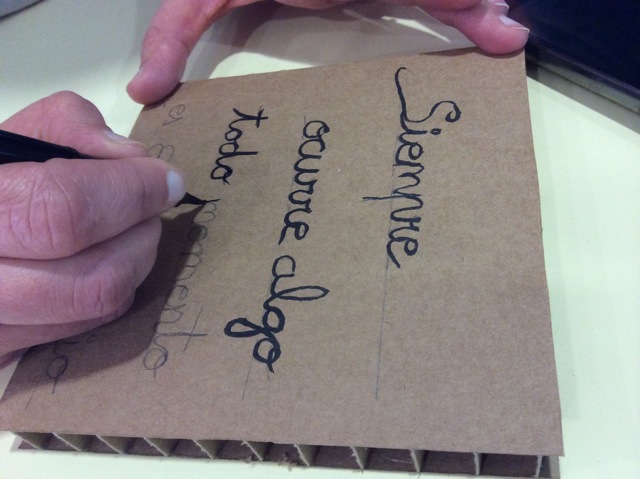 Siempre
ocurre algo
todo momento
es